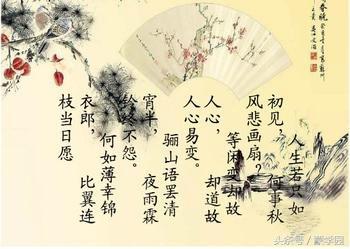 人生若只如
初见，何事秋
风悲画扇？
等闲变却故
人心，却道故
人心易变。
骊山语罢清
宵半，夜雨霖
铃终不怨。
何如薄幸锦
衣郎，比翼连
枝当日愿
头条号／蒙学园